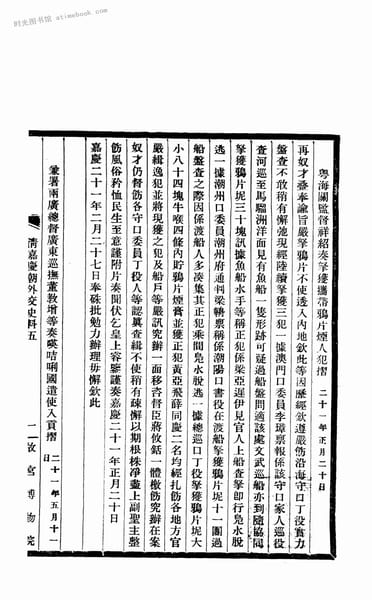 时光图书馆 www.atimebook.com
粵海關監督祥紹奏拏獲攜帶鴉片煙人犯摺 二十一年正月二十日
再奴才叠奉諭旨嚴拏鴉片不使透入內地欽此等因歷經欽遵嚴飭沿海守口丁役實力
盤查不敢稍有懈弛現經陸續拏獲三犯一據澳門口委員李璋稟報係該守口家人巡役
查河巡至馬騮洲洋面見有魚船一隻形跡可疑過船盤問適該處文武巡船亦到隨協同
拏獲鴉片坭三十塊訊據魚船水手等稱正犯係梁亞運伊見官人上船查拏卽行鳧水脫
逃一據潮州口委員潮州府通判梁 稟稱係潮陽口書役在渡船拏獲鴉片坭十一團過
船盤查之際因係渡船人多湊集其正犯乘間鳧水脫逃一據總巡口丁役拏獲鴉片坭大
小八十四塊牛喉四條內貯鴉片煙膏並獲正犯黃亞飛薛同慶二名均經扎飭各地方官
嚴緝逸犯並將現獲之犯及船戶等嚴訊究辦一面移咨督臣蔣攸銛一體檄飭究辦在案
奴才仍督飭各守口委員丁役人等認眞查緝不使稍有疎懈以期根株凈盡上副聖主整
飭風俗矜恤民生至意謹附片奏聞伏乞皇上睿鑒謹奏嘉慶二十一年正月二十日
嘉慶二十一年二月二十七日奉硃批勉力辦理毋懈欽此
兼署兩廣總督廣東巡撫董教增等奏𠸄咭唎國遣使入貢摺 二十一年五月十一日
清嘉慶朝外交史料五
一
故宮博物院